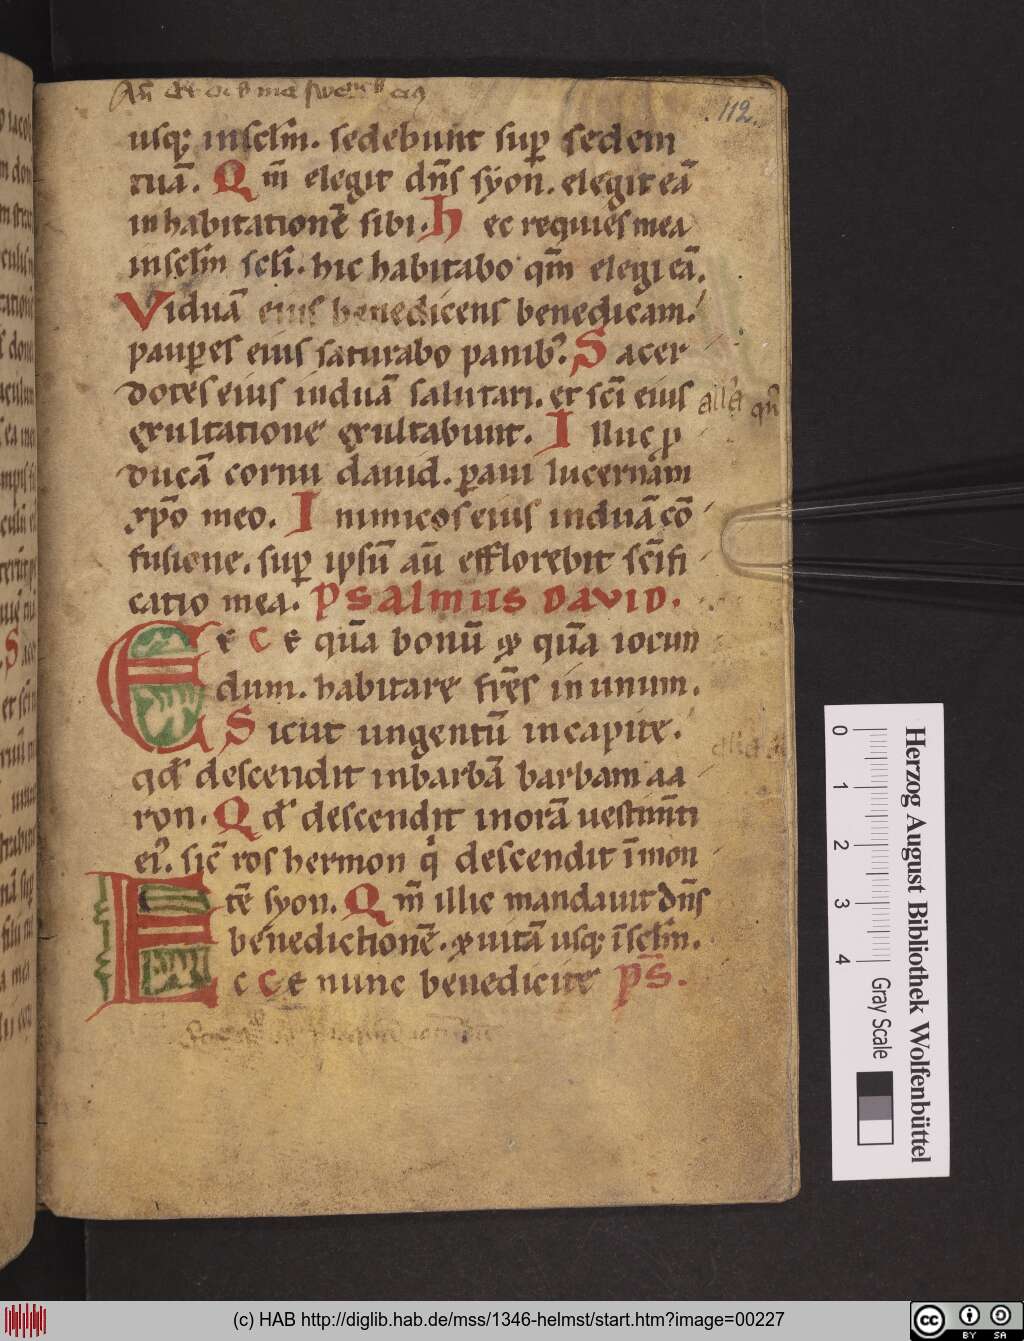 112.
usq; insclm̄. sedebunt sup̄ sedem
tuā. Qm̄ elegit dn̄s syon. elegit eā
in habitationē sibi. hec requies mea
insclm̄ scli. hic habitabo qm̄ elegi eā.
Viduā eius benedicens benedicam.
paup̄es eius saturabo panibꝰ. Sacer
dotes eius induā salutari. et sc̄i eius
exultatione exultabunt. Illuc p̄
ducā cornu dauid. paui lucernam
xp̄o meo. Inimicos eius induā cō
fusione. sup̄ ipsū aū efflorebit sc̄ifi
catio mea. Psalmus DAVID.
Ecce quā bonū & quā iocun
dum. habitare frēs in unum.
Sicut ungentū in capite.
qd̄ descendit in barbā barbam aa
ron. Qd̄ descendit in orā uestimn̄ti
eiꝰ. sic̄ ros hermon q̇ descendit ī mon
tē syon. Qm̄ illic mandauit dn̄s
benedictionē. & uitā usq; īsclm̄.
Ecce nunc benedicite p̄s.
allā qm̄
Herzog August Bibliothek Wolfenbüttel
0 1 2 3 4
Gray Scale
(c) HAB http://diglib.hab.de/mss/1346-helmst/start.htm?image=00227
cc BY SA